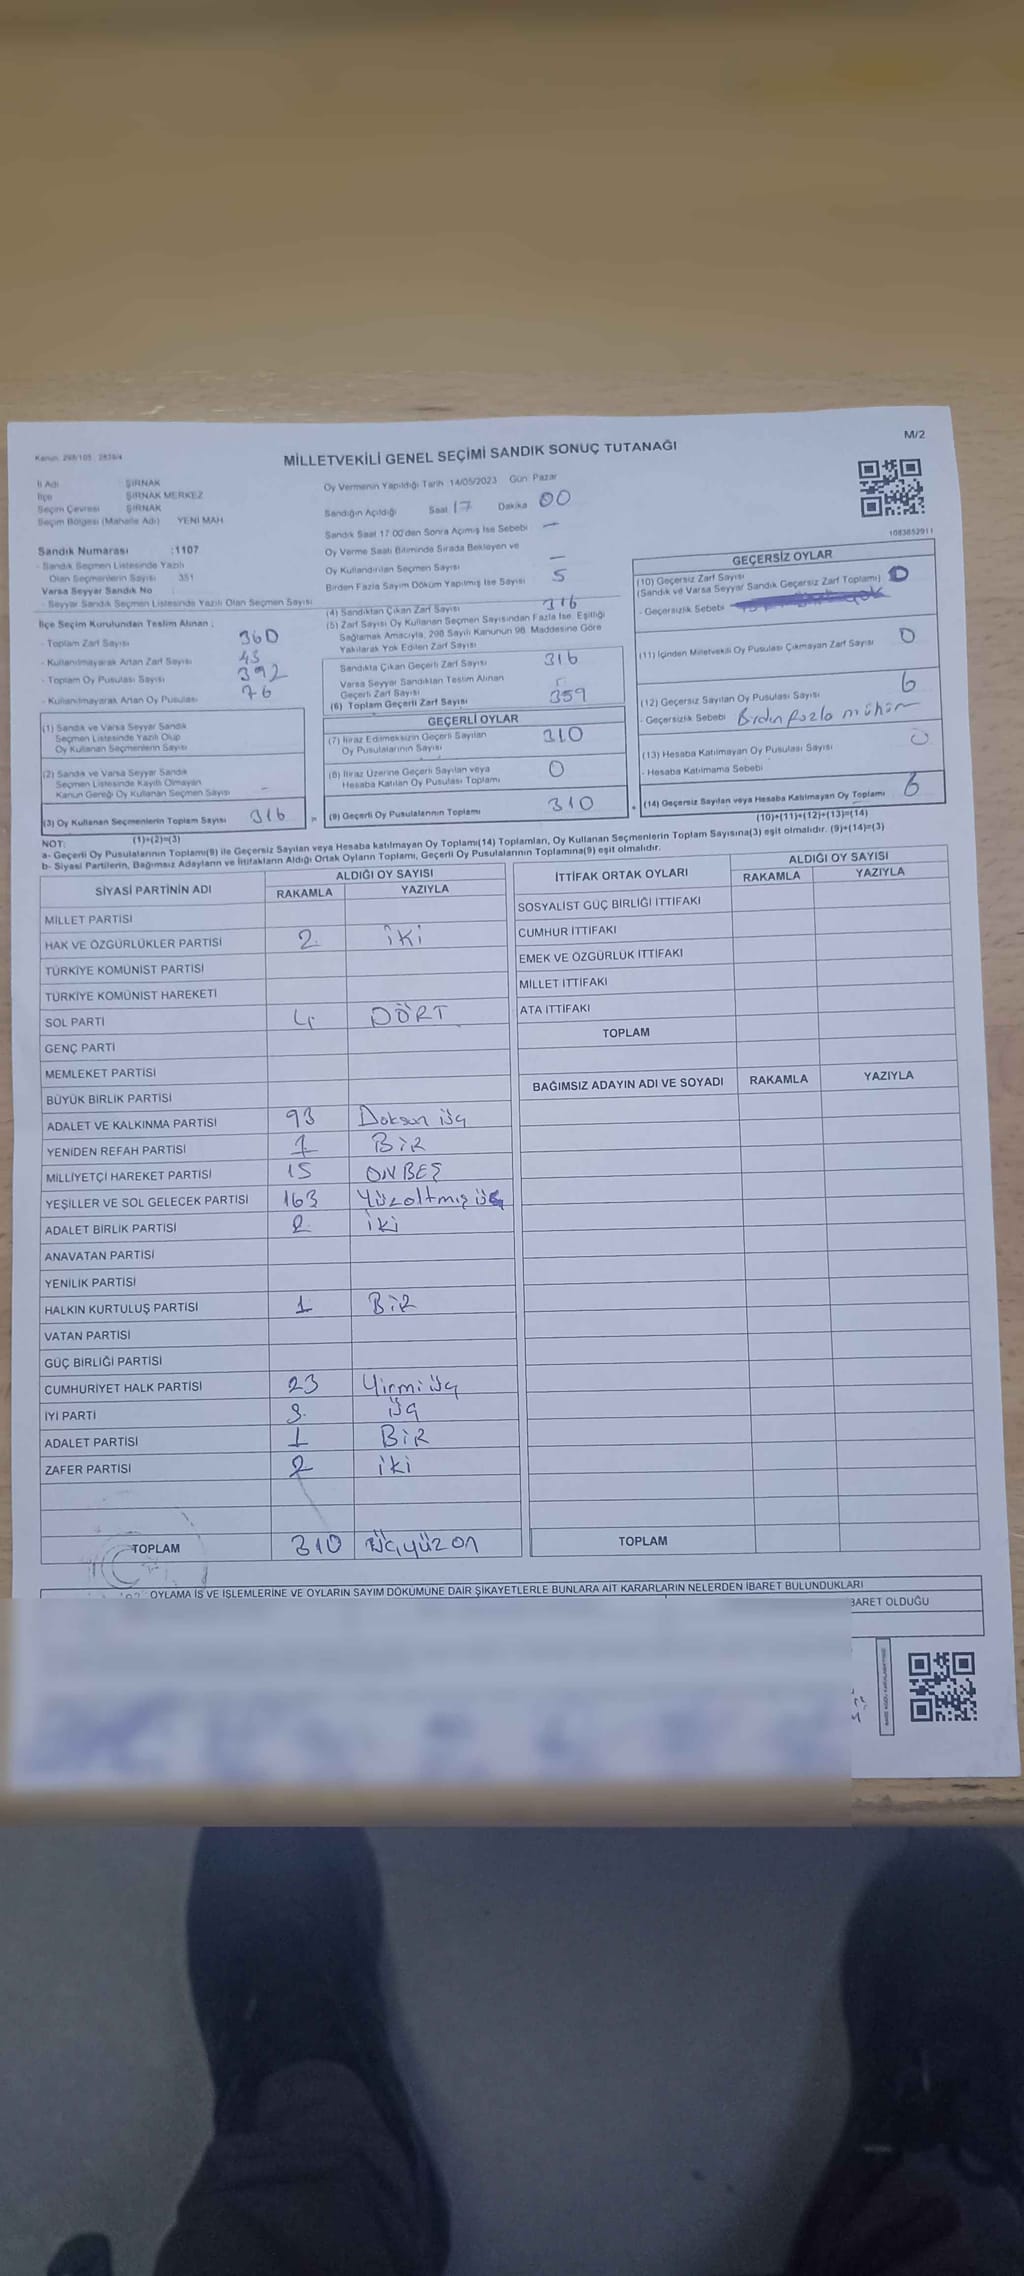 M/2
Kanun: 298/105 : 2839/4
MİLLETVEKİLİ GENEL SEÇİMİ SANDIK SONUÇ TUTANAĞI
İl Adı ŞIRNAK
İlçe ŞIRNAK MERKEZ
Seçim Çevresi ŞIRNAK
Seçim Bölgesi (Mahalle Adı) YENİ MAH
Sandık Numarası :1107
- Sandık Seçmen Listesinde Yazılı
Olan Seçmenlerin Sayısı 351
Varsa Seyyar Sandık No
- Seyyar Sandık Seçmen Listesinde Yazılı Olan Seçmen Sayısı
İlçe Seçim Kurulundan Teslim Alınan :
- Toplam Zarf Sayısı 360
- Kullanılmayarak Artan Zarf Sayısı 43
- Toplam Oy Pusulası Sayısı 392
- Kullanılmayarak Artan Oy Pusulası 76
(1) Sandık ve Varsa Seyyar Sandık
Seçmen Listesinde Yazılı Olup
Oy Kullanan Seçmenlerin Sayısı
(2) Sandık ve Varsa Seyyar Sandık
Seçmen Listesinde Kayıtlı Olmayan
Kanun Gereği Oy Kullanan Seçmen Sayısı -
(3) Oy Kullanan Seçmenlerin Toplam Sayısı 316
Oy Vermenin Yapıldığı Tarih 14/05/2023 Gün: Pazar
Sandığın Açıldığı Saat 17 Dakika 00
Sandık Saat 17.00'den Sonra Açımış İse Sebebi —
Oy Verme Saati Bitiminde Sırada Bekleyen ve
Oy Kullandırılan Seçmen Sayısı —
Birden Fazla Sayım Döküm Yapılmış İse Sayısı 5
(4) Sandıktan Çıkan Zarf Sayısı 316
(5) Zarf Sayısı Oy Kullanan Seçmen Sayısından Fazla İse, Eşitliği
Sağlamak Amacıyla, 298 Sayılı Kanunun 98. Maddesine Göre
Yakılarak Yok Edilen Zarf Sayısı
Sandıkta Çıkan Geçerli Zarf Sayısı 316
Varsa Seyyar Sandıktan Teslim Alınan
Geçerli Zarf Sayısı
(6) Toplam Geçerli Zarf Sayısı 359
GEÇERLİ OYLAR
(7) İtiraz Edilmeksizin Geçerli Sayılan
Oy Pusulalarının Sayısı 310
(8) İtiraz Üzerine Geçerli Sayılan veya
Hesaba Katılan Oy Pusulası Toplamı 0
= (9) Geçerli Oy Pusulalarının Toplamı 310
1083852911
GEÇERSİZ OYLAR
(10) Geçersiz Zarf Sayısı
(Sandık ve Varsa Seyyar Sandık Geçersiz Zarf Toplamı) 0
- Geçersizlik Sebebi
(11) İçinden Milletvekili Oy Pusulası Çıkmayan Zarf Sayısı 0
(12) Geçersiz Sayılan Oy Pusulası Sayısı 6
- Geçersizlik Sebebi Birden fazla mühür
(13) Hesaba Katılmayan Oy Pusulası Sayısı 0
- Hesaba Katılmama Sebebi
+ (14) Geçersiz Sayılan veya Hesaba Katılmayan Oy Toplamı 6
NOT: (1)+(2)=(3) (10)+(11)+(12)+(13)=(14)
a- Geçerli Oy Pusulalarının Toplamı(9) ile Geçersiz Sayılan veya Hesaba katılmayan Oy Toplamı(14) Toplamları, Oy Kullanan Seçmenlerin Toplam Sayısına(3) eşit olmalıdır. (9)+(14)=(3)
b- Siyasi Partilerin, Bağımsız Adayların ve İttifakların Aldığı Ortak Oyların Toplamı, Geçerli Oy Pusulalarının Toplamına(9) eşit olmalıdır.
SİYASİ PARTİNİN ADI ALDIĞI OY SAYISI
RAKAMLA YAZIYLA
MİLLET PARTİSİ
HAK VE ÖZGÜRLÜKLER PARTİSİ 2 İKİ
TÜRKİYE KOMÜNİST PARTİSİ
TÜRKİYE KOMÜNİST HAREKETİ
SOL PARTİ 4 DÖRT
GENÇ PARTİ
MEMLEKET PARTİSİ
BÜYÜK BİRLİK PARTİSİ
ADALET VE KALKINMA PARTİSİ 93 Doksan üç
YENİDEN REFAH PARTİSİ 1 BİR
MİLLİYETÇİ HAREKET PARTİSİ 15 ONBEŞ
YEŞİLLER VE SOL GELECEK PARTİSİ 163 Yüzaltmış üç
ADALET BİRLİK PARTİSİ 2 iki
ANAVATAN PARTİSİ
YENİLİK PARTİSİ
HALKIN KURTULUŞ PARTİSİ 1 BİR
VATAN PARTİSİ
GÜÇ BİRLİĞİ PARTİSİ
CUMHURİYET HALK PARTİSİ 23 Yirmi üç
İYİ PARTİ 3 üç
ADALET PARTİSİ 1 BİR
ZAFER PARTİSİ 2 iki
TOPLAM 310 Üçyüz on
İTTİFAK ORTAK OYLARI ALDIĞI OY SAYISI
RAKAMLA YAZIYLA
SOSYALİST GÜÇ BİRLİĞİ İTTİFAKI
CUMHUR İTTİFAKI
EMEK VE ÖZGÜRLÜK İTTİFAKI
MİLLET İTTİFAKI
ATA İTTİFAKI
TOPLAM
BAĞIMSIZ ADAYIN ADI VE SOYADI RAKAMLA YAZIYLA
TOPLAM
OYLAMA İŞ VE İŞLEMLERİNE VE OYLARIN SAYIM DÖKÜMÜNE DAİR ŞİKAYETLERLE BUNLARA AİT KARARLARIN NELERDEN İBARET BULUNDUKLARI
BARET OLDUĞU